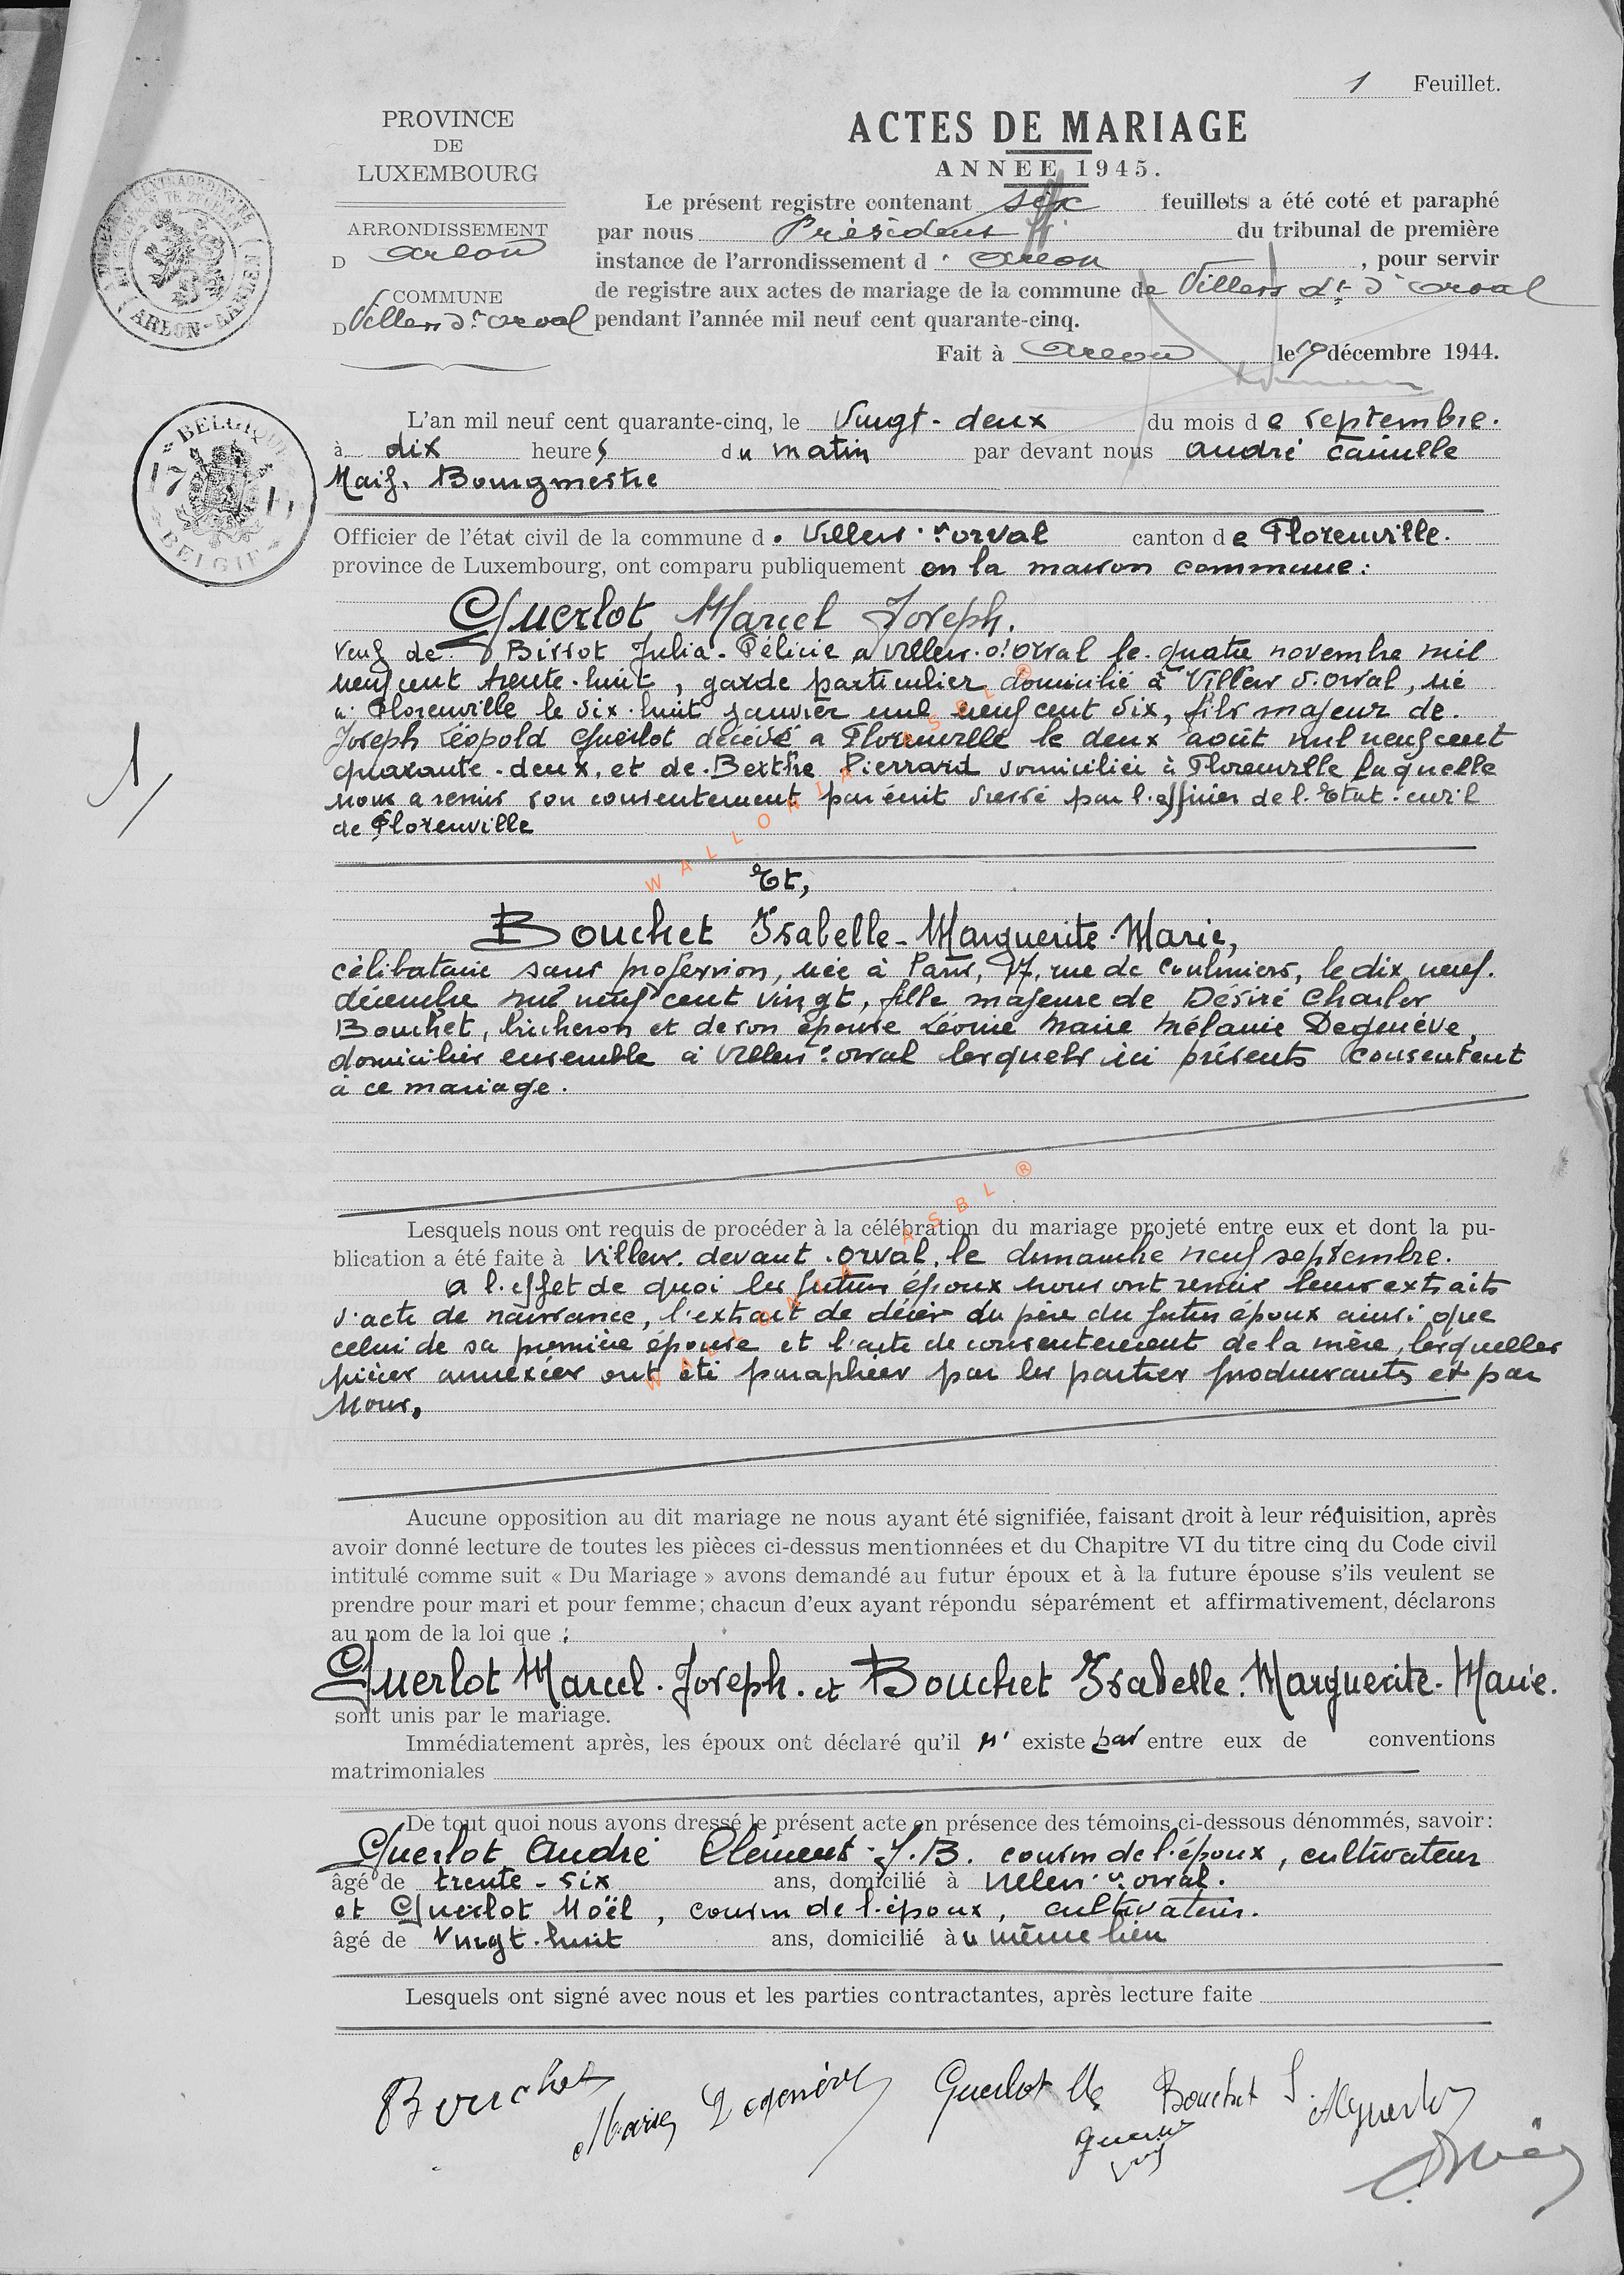 1 Feuillet.
PROVINCE
DE
LUXEMBOURG
ARRONDISSEMENT
D Arlon
COMMUNE
D Villers dt Orval
ACTES DE MARIAGE
ANNEE 1945.
Le présent registre contenant six feuillets a été coté et paraphé
par nous Président du tribunal de première
instance de l'arrondissement d' Arlon, pour servir
de registre aux actes de mariage de la commune de Villers dt d'Orval
pendant l'année mil neuf cent quarante-cinq.
Fait à Arlon le 19 décembre 1944.
ARLON
BELGIQUE
BELGIE
L'an mil neuf cent quarante-cinq, le Vingt-deux du mois de septembre.
à dix heures du matin par devant nous André Camille
Maif. Bourgmestre
Officier de l'état civil de la commune d. Villers dt orval canton de Florenville.
province de Luxembourg, ont comparu publiquement en la maison commune:
Guerlot Marcel Joseph.
veuf de Bissot Julia-Félicie a Villers d. Orval le quatre novembre mil
neuf cent trente-huit, garde particulier domicilié à Villers d. Orval, né
à Florenville le dix-huit janvier mil neuf cent six, fils majeur de
Joseph Léopold Guerlot décédé a Florenville le deux août mil neuf cent
quarante-deux, et de Berthe Pierrard domiciliée à Florenville laquelle
nous a remis son consentement par écrit dressé par l'officier de l'Etat-civil
de Florenville
1/
Et,
Bouchet Isabelle-Marguerite-Marie,
célibataire sans profession, née à Paris, 17, rue de Coulmiers, le dix neuf.
décembre mil neuf cent vingt, fille majeure de Désiré Charles
Bouchet, bûcheron et de son épouse Léonie Marie Mélanie Degenève,
domiciliés ensemble à Villers dt orval lesquels ici présents consentent
à ce mariage.
Lesquels nous ont requis de procéder à la célébration du mariage projeté entre eux et dont la pu-
blication a été faite à Villers devant Orval, le dimanche neuf septembre.
A l'effet de quoi les futurs époux nous ont remis leurs extraits
d'acte de naissance, l'extrait de décès du père du futur époux ainsi que
celui de sa première épouse et l'acte de consentement de la mère, lesquelles
pièces annexées ont été paraphées par les parties produisants et par
Nous.
Aucune opposition au dit mariage ne nous ayant été signifiée, faisant droit à leur réquisition, après
avoir donné lecture de toutes les pièces ci-dessus mentionnées et du Chapitre VI du titre cinq du Code civil
intitulé comme suit « Du Mariage » avons demandé au futur époux et à la future épouse s'ils veulent se
prendre pour mari et pour femme; chacun d'eux ayant répondu séparément et affirmativement, déclarons
au nom de la loi que :
Guerlot Marcel-Joseph. et Bouchet Isabelle-Marguerite-Marie.
sont unis par le mariage.
Immédiatement après, les époux ont déclaré qu'il n' existe pas entre eux de conventions
matrimoniales
De tout quoi nous avons dressé le présent acte en présence des témoins ci-dessous dénommés, savoir:
Guerlot André Clément-J.B. cousin de l'époux, cultivateur
âgé de trente-six ans, domicilié à Villers dt orval.
et Guerlot Noël, cousin de l'époux, cultivateur.
âgé de Vingt-huit ans, domicilié au même lieu
Lesquels ont signé avec nous et les parties contractantes, après lecture faite
Bouchet Marie Degenève Guerlot Bouchet I.
WALLONIA ASBL ®
WALLONIA ASBL ®